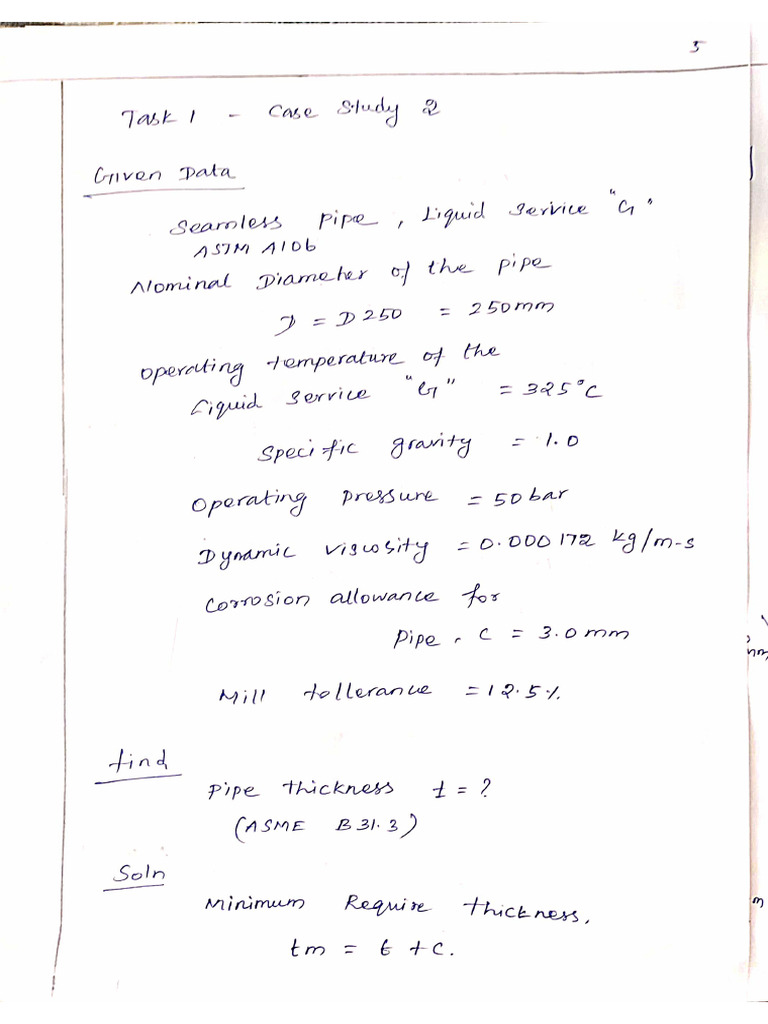 5
Task 1 - Case Study 2
Given Data
Seamless Pipe, Liquid Service "G"
ASTM A106
Nominal Diameter of the pipe
D = D250 = 250mm
Operating temperature of the
Liquid Service "G" = 325°C
Specific gravity = 1.0
Operating Pressure = 50 bar
Dynamic Viscosity = 0.000172 kg/m-s
Corrosion allowance for
Pipe, C = 3.0mm
Mill tollerance = 12.5%
find
Pipe thickness t = ?
(ASME B31.3)
Soln
Minimum Require thickness,
tm = t + C.